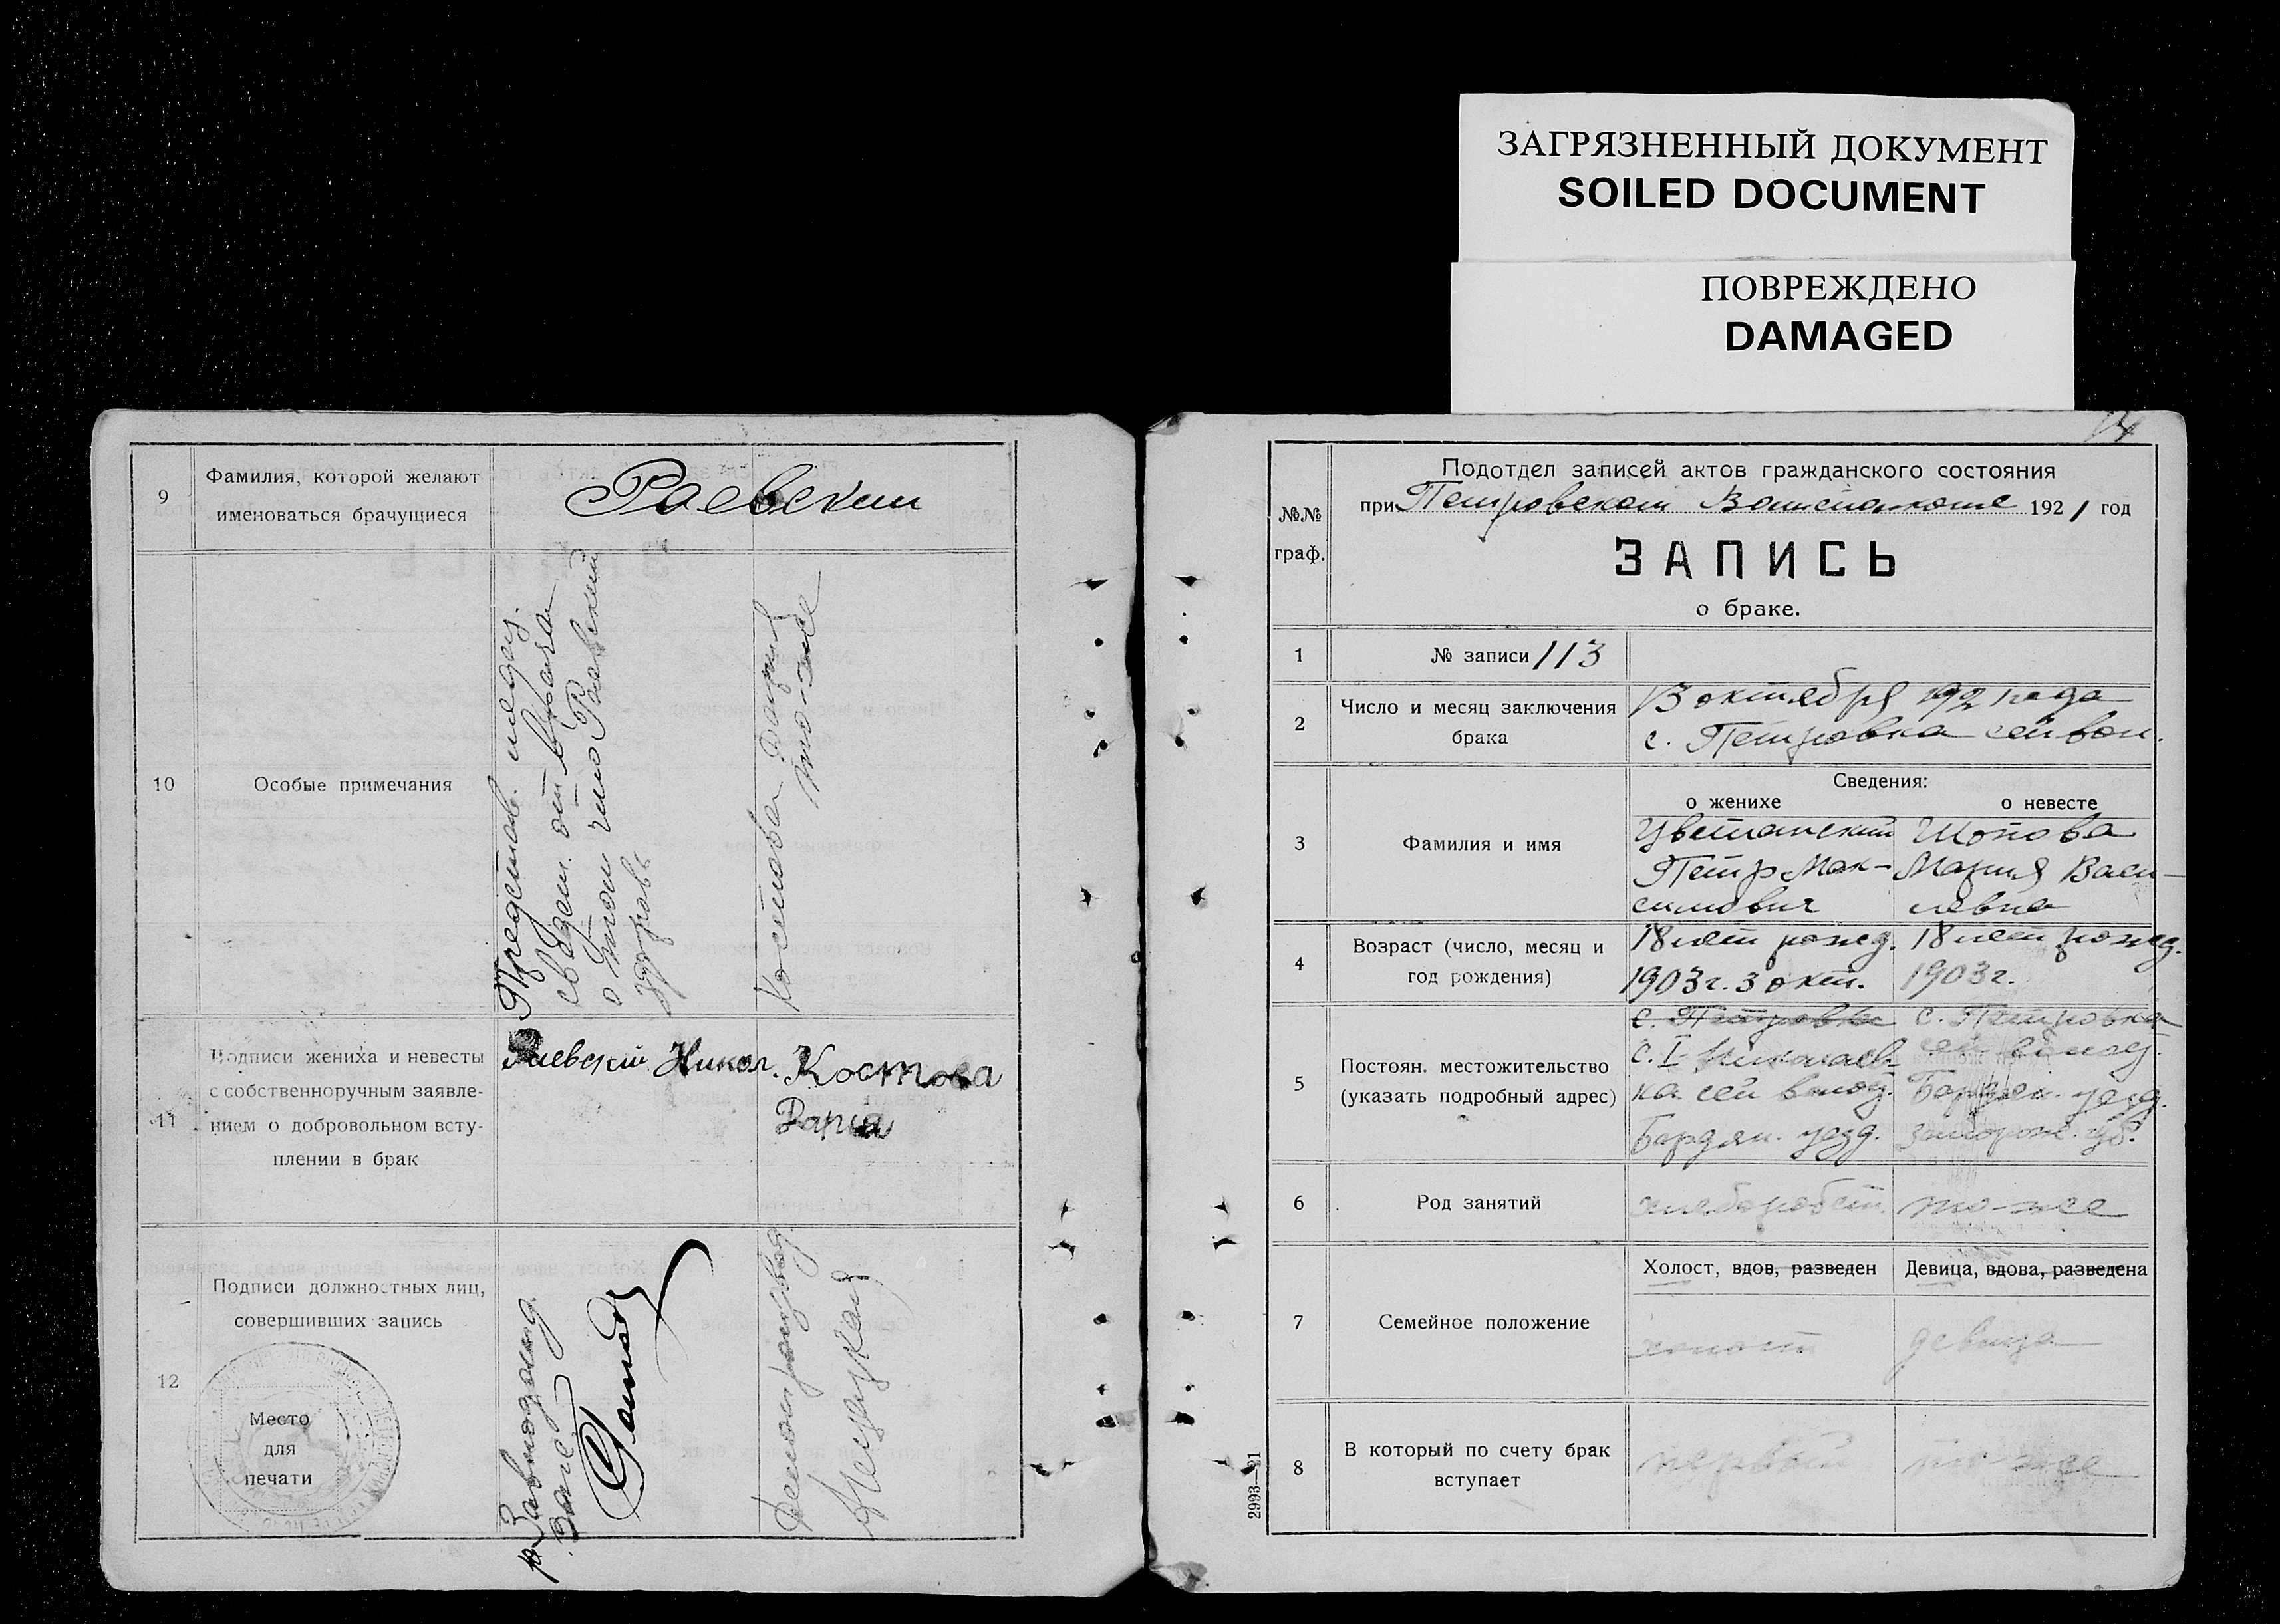 ЗАГРЯЗНЕННЫЙ ДОКУМЕНТ
SOILED DOCUMENT
ПОВРЕЖДЕНО
DAMAGED
9
Фамилия, которой желают
именоваться брачущиеся
Раевский
10
Особые примечания
Представ. медиц.
свидет. от врача
о том что Раевский
здоровъ
Костова Дария
то-же
11
Подписи жениха и невесты
с собственноручным заявле-
нием о добровольном всту-
плении в брак
Раевский Никол.
Костова
Дария
12
Подписи должностных лиц,
совершивших запись
Место
для
печати
Завподотд.
Загс
Делопроизвод.
14
№№
граф.
Подотдел записей актов гражданского состояния
при Петровском Волисполкоме 1921 год
ЗАПИСЬ
о браке.
1
№ записи 113
2
Число и месяц заключения
брака
13 октября 1921 года
с. Петровка сей вол.
Сведения:
о женихе
о невесте
3
Фамилия и имя
Цветанский
Петр Мак-
симович
Шопова
Мария Васи-
левна
4
Возраст (число, месяц и
год рождения)
18 лет рожд.
1903г. 3 окт.
18 лет рожд.
1903г.
5
Постоян. местожительство
(указать подробный адрес)
с. Петровка
с. I Николаев-
ка сей волод.
Бардян. уезд.
с. Петровка
сей волод.
Бардян. уезд.
запорож. губ.
6
Род занятий
хлеборобст.
то-же
7
Семейное положение
Холост, вдов, разведен
Девица, вдова, разведена
холост
девица
8
В который по счету брак
вступает
первый
то-же
2993—21